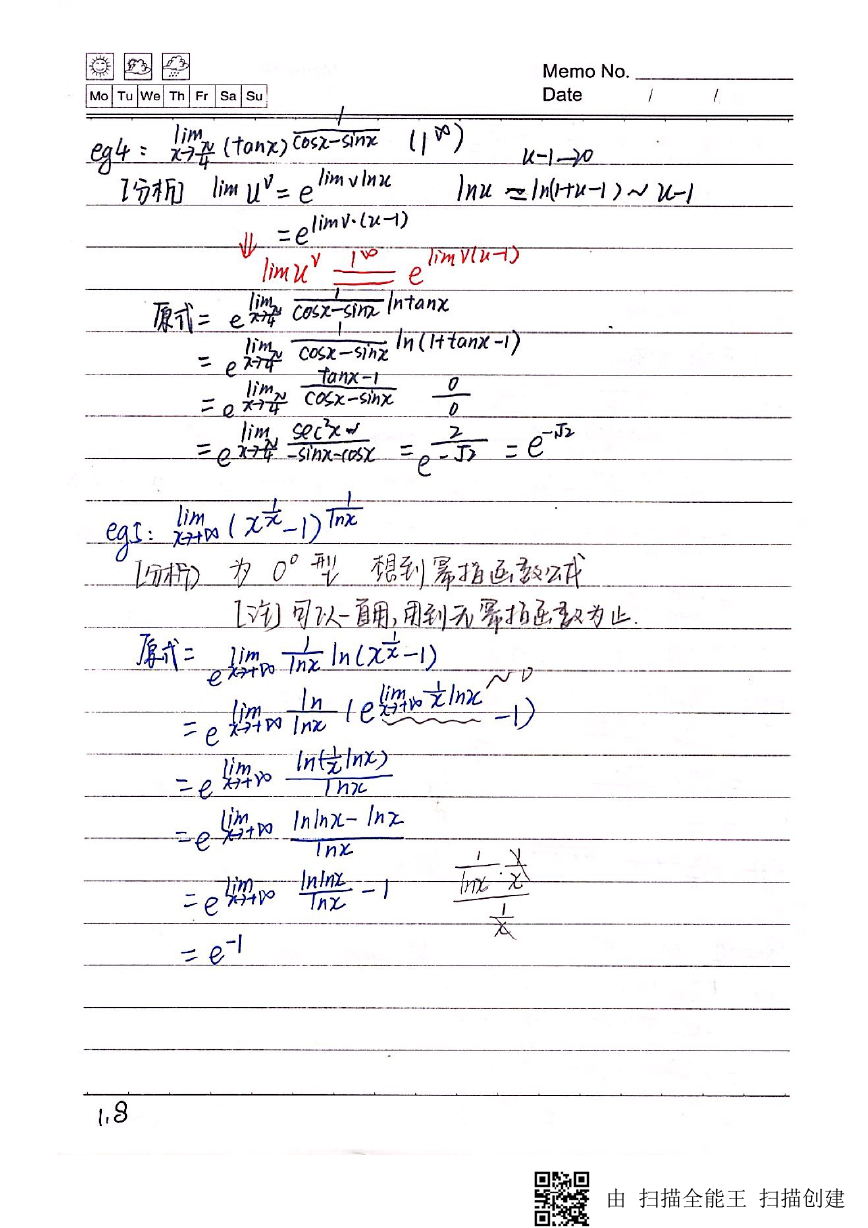 Memo No.
Mo Tu We Th Fr Sa Su
Date / /
eg4: lim x→π/4 (tanx)^(1/(cosx-sinx)) (1^∞)
u-1→0
[分析] lim u^v = e^(lim vlnu) lnu = ln(1+u-1) ~ u-1
= e^(lim v·(u-1))
⇓ lim u^v =(1^∞)= e^(lim v(u-1))
原式 = e^(lim x→π/4 1/(cosx-sinx) lntanx)
= e^(lim x→π/4 1/(cosx-sinx) ln(1+tanx-1))
= e^(lim x→π/4 (tanx-1)/(cosx-sinx)) 0/0
= e^(lim x→π/4 sec²x/(-sinx-cosx)) = e^(2/-√2) = e^(-√2)
eg5: lim x→+∞ (x^(1/x)-1)^(1/lnx)
[分析] 为 0^0 型 想到幂指函数公式
[注] 可以一直用,用到无幂指函数为止.
原式 = e^(lim x→+∞ 1/lnx ln(x^(1/x)-1))
= e^(lim x→+∞ ln/lnx (e^(lim x→+∞ 1/x lnx) -1)) ~0
= e^(lim x→+∞ ln(1/x lnx)/lnx)
= e^(lim x→+∞ (lnlnx-lnx)/lnx)
= e^(lim x→+∞ lnlnx/lnx -1) (1/lnx · 1/x)/(1/x)
= e^-1
1.8
由 扫描全能王 扫描创建